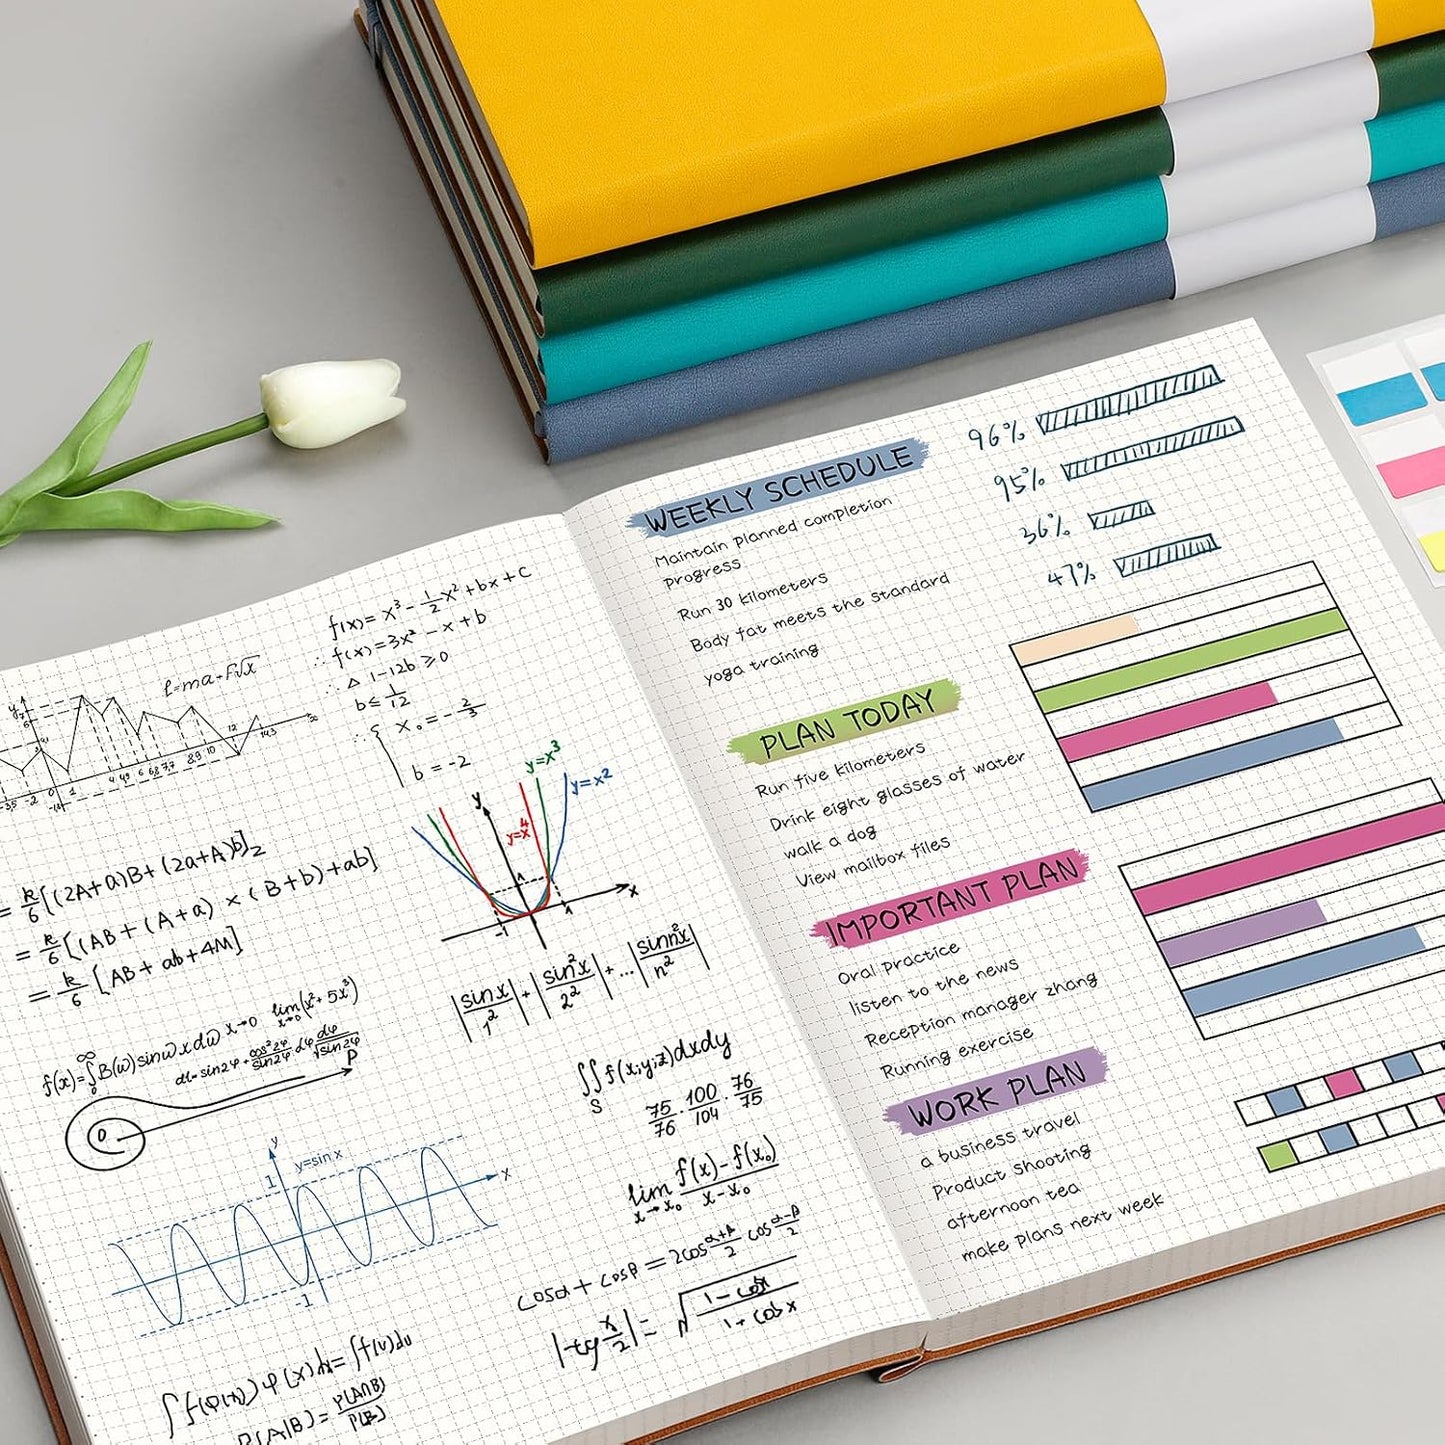 f(x)= x³- 1/2x²+bx+c
∴ f(x)=3x² -x+b
∴ △ 1-12b ⩾0
b≤ 1/12
∴ { x₀=- 2/3
b = -2
y
x
-2 0 1 4 6 8,9 10 12 14,3
= k/6[(2A+a)B+(2a+A)b]₂
= k/6[(AB+(A+a) × (B+b)+ab]
= k/6 [AB+ab+4M]
y=x³
y=x²
y=x⁴
y
x
1
-1 1
|sinx/1²|+|sin²x/2²|+...|sinn²x/n²|
f(x)=∫₀^∞ B(ω)sinωxdω x→0 lim x→0 (x²+5x³)
P
0
y
y=sin x
1
x
-1
∫∫ f(x;y;z)dxdy
S
75/76 · 100/104 · 76/75
lim x→x₀ f(x)-f(x₀)/x-x₀
cosα+cosβ=2cos α+β/2 cos α-β/2
|tg x/2|= √ 1-cosx/1+cosx
P(A|B)= P(A∩B)/P(B)
WEEKLY SCHEDULE
Maintain planned completion
progress
Run 30 kilometers
Body fat meets the standard
yoga training
96%
95%
36%
47%
PLAN TODAY
Run five kilometers
Drink eight glasses of water
walk a dog
View mailbox files
IMPORTANT PLAN
Oral practice
listen to the news
Reception manager zhang
Running exercise
WORK PLAN
a business travel
Product shooting
afternoon tea
make plans next week